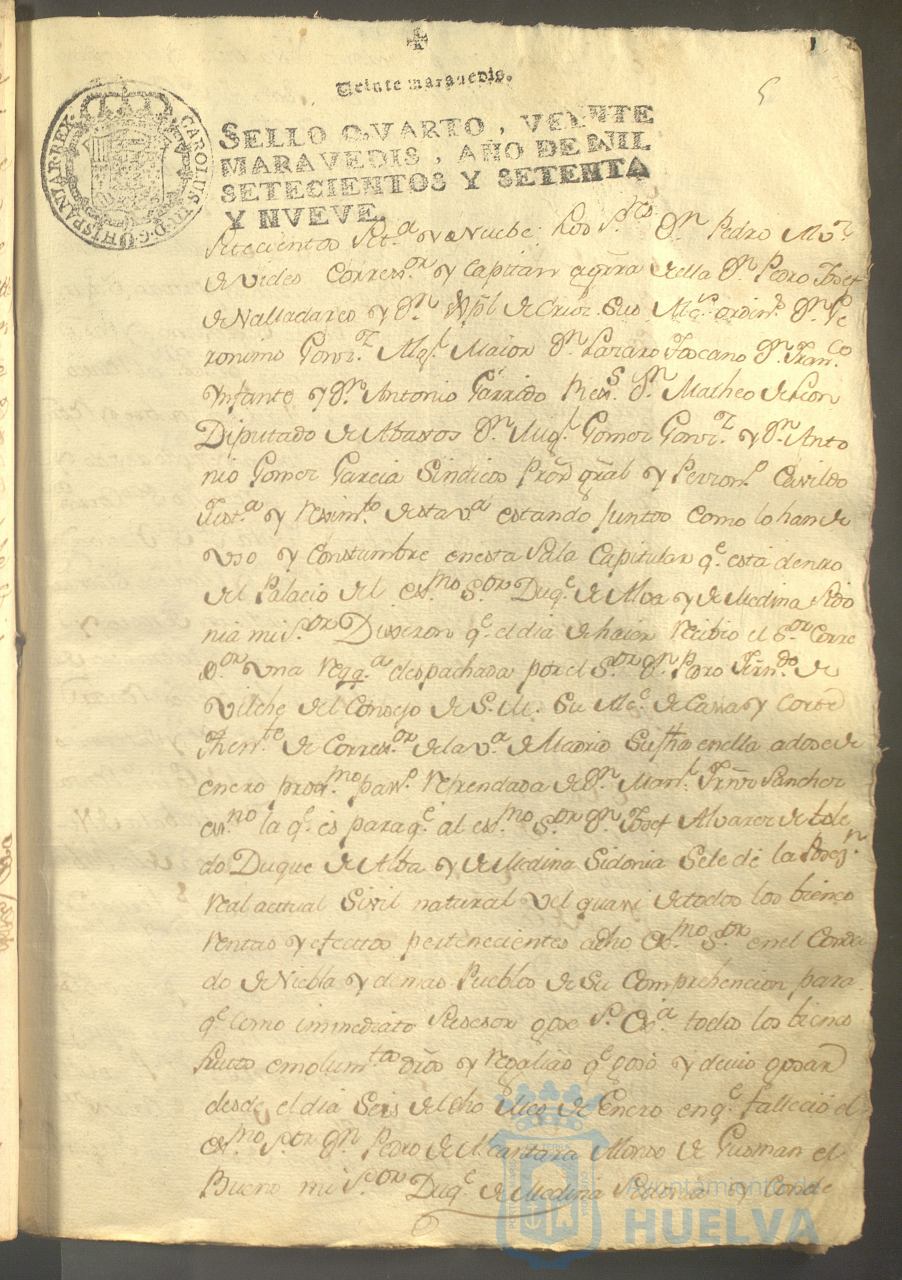 5
Veinte maravedis.
SELLO QVARTO, VEINTE
MARAVEDIS, AÑO DE MIL
SETECIENTOS Y SETENTA
Y NVEVE.
CAROLUS III D.G. HISPANIAR. REX
setecientos Set.ª y Nuebe: Los S.res D.n Pedro
de Vides Correx.or y Capitan a grra della D.n Pedro Josef
de Valladares y D.n de Sus M.s ordin.s D.n Ge
ronimo Gonz.z Alg.l Maior D.n Lazaro Toscano D.n Fran.co
Ynfante y D.n Antonio Garrido Rex.s D.n Matheo de Leon
Diputado de Abastos D.n Mig.l Gomez Gonz.z y D.n Anto
nio Gomez Garcia Sindicos Pror gral y Person.o Cavildo
Just.a y Rexim.to desta V.a estando juntos como lo han de
uso y Constumbre en esta Sala Capitular q.e está dentro
del Palacio del ex.mo S.or Duq.e de Alva y de Medina Sido
nia mi S.or Dixeron q.e el dia de haier recibio el S.or Corre
x.or una Reqq.a despachada por el S.or D.n Pedro Frn.do de
Vilche del Consejo de S. M. Su Al.e de Casa y Corte
Then.te de Correx.or de la V.a de Madrid Su fha en ella a dose de
enero prox.mo pas.o Refrendada de D.n Man.l Frnz Sanchez
es.no la q.e es para q.e al ex.mo S.or D.n Josef Alvarez de tole
do Duque de Alba y de Medina Sidonia Se le dé la Poses.n
Real actual Sivil natural vel quasi de todos los bienes
Rentas y efectos pertenecientes a dho Ex.mo S.or en el Conda
do de Niebla y demas Pueblos de Su Comprehencion para
q.e como immediato Susesor gose S. Ex.a todos los bienes
frutos emolum.tos dros y regalias q.e gosò y devio gosar
desde el dia Seis del dho Mes de Enero en q.e falleció el
Ex.mo S.or D.n Pedro de Alcantara Alonso de Gusman el
Bueno mi S.or Duq.e de Medina Sidonia y Conde
Ayuntamiento de
HUELVA